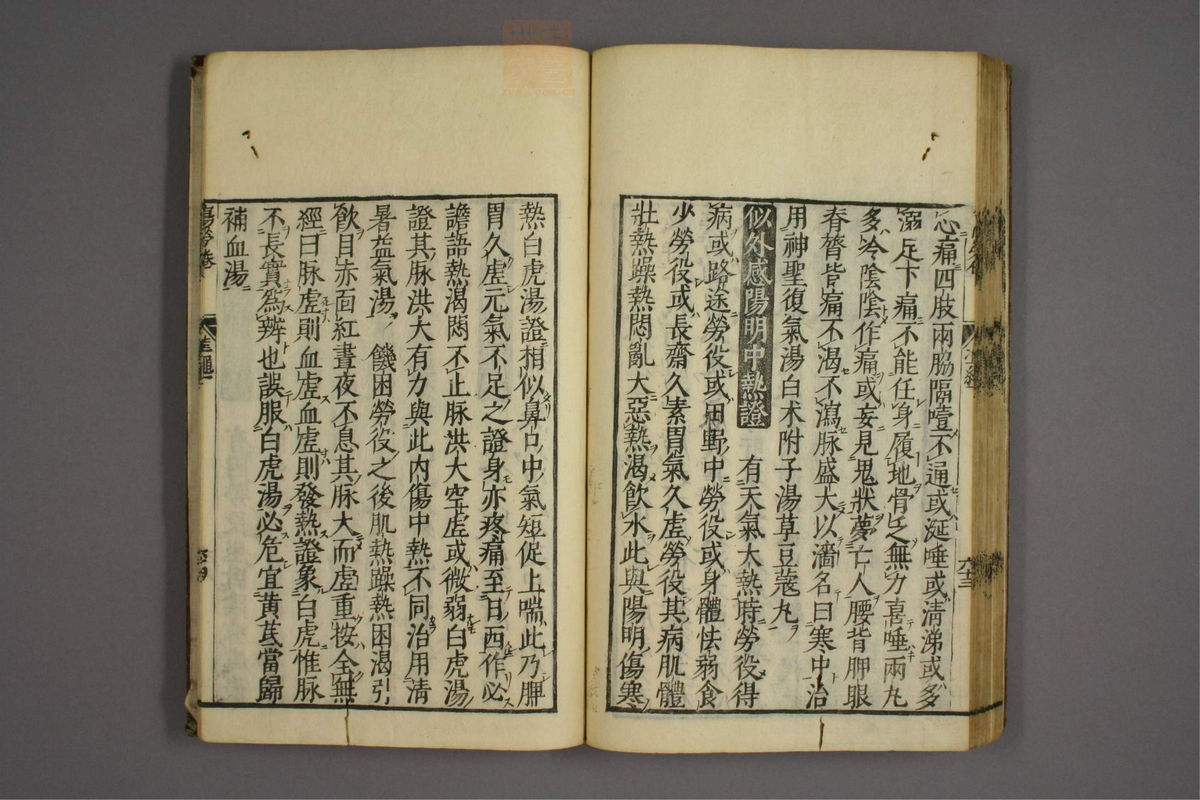 心痛四肢兩脇隔噎不通或涎唾或清涕或多
溺足下痛不能任身履地骨乏無力喜唾兩丸
多冷陰陰作痛或妄見鬼狀夢亡人腰背胛眼
脊膂皆痛不渴不瀉脉盛大以濇名曰寒中治
用神聖復氣湯白朮附子湯草豆蔻丸
似外感陽明中熱證 有天氣大熱時勞役得
病或路途勞役或田野中勞役或身體怯弱食
少勞役或長齋久素胃氣久虛勞役其病肌體
壯熱躁熱悶亂大惡熱渴飲水此與陽明傷寒
熱白虎湯證相似鼻口中氣短促上喘此乃脾
胃久虛元氣不足之證身亦疼痛至日西作必
譫語熱渴悶不止脉洪大空虛或微弱白虎湯
證其脉洪大有力與此內傷中熱不同治用清
暑益氣湯 饑困勞役之後肌熱躁熱困渴引
飲目赤面紅晝夜不息其脉大而虛重按全無
經曰脉虛則血虛血虛則發熱證象白虎惟脉
不長實爲辨也誤服白虎湯必危宜黃芪當歸
補血湯